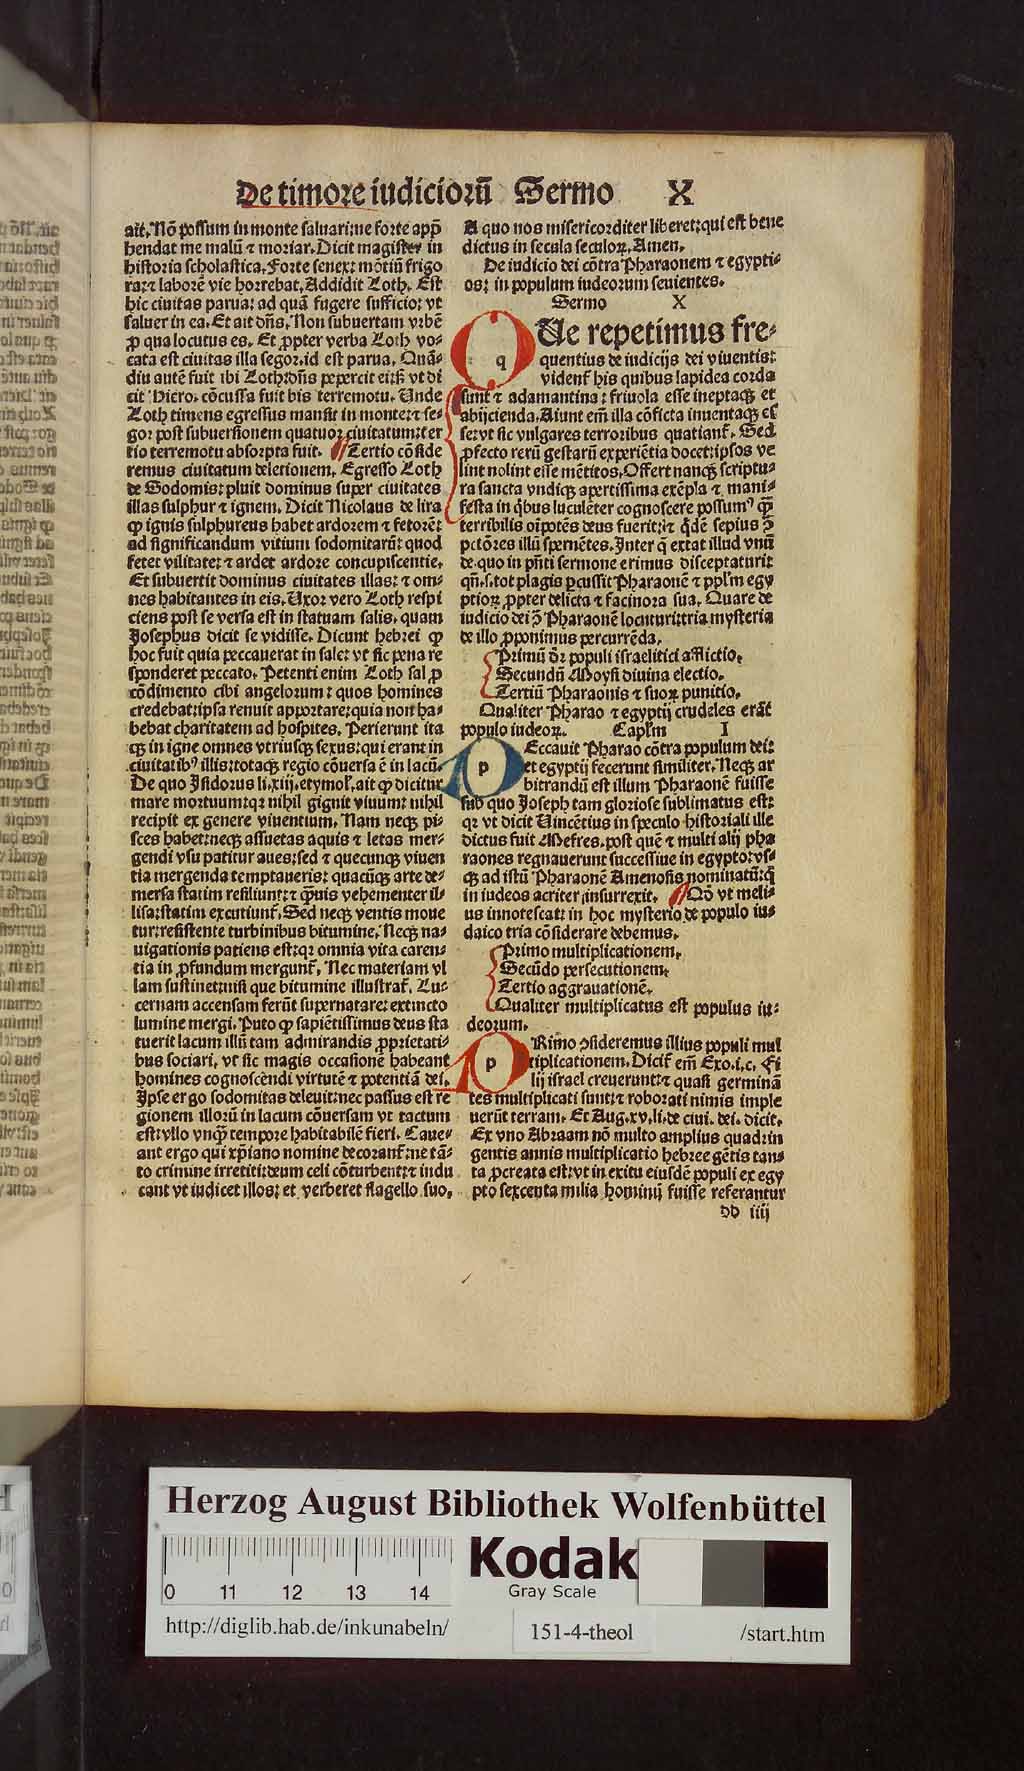 De timore iudiciorũ Sermo X
ait. Nõ possum in monte saluari: ne forte app̃
hendat me malũ ⁊ moriar. Dicit magister in
historia scholastica. Forte senex: mõtiũ frigo
ra: ⁊ laborẽ vie horrebat. Addidit Loth. Est
hic ciuitas parua: ad quã fugere sufficio: vt
saluer in ea. Et ait dñs. Non subuertam vrbẽ
ꝓ qua locutus es. Et ꝓpter verba Loth vo-
cata est ciuitas illa segor. id est parua. Quã-
diu autẽ fuit ibi Loth: dñs pepercit ei: sꝫ vt di
cit Hiero. cõcussa fuit bis terremotu. Unde
Loth timens egressus mansit in monte: ⁊ se-
gor post subuersionem quatuor ciuitatum: ter
tio terremotu absorpta fuit. Tertio cõside
remus ciuitatum deletionem. Egresso Loth
de Sodomis: pluit dominus super ciuitates
illas sulphur ⁊ ignem. Dicit Nicolaus de lira
ꝙ ignis sulphureus habet ardorem ⁊ fetorẽ:
ad significandum vitium sodomitarũ: quod
fetet vilitate: ⁊ ardet ardore concupiscentie.
Et subuertit dominus ciuitates illas: ⁊ om-
nes habitantes in eis. Uxor vero Loth respi
ciens post se versa est in statuam salis, quam
Josephus dicit se vidisse. Dicunt hebrei ꝙ
hoc fuit quia peccauerat in sale: vt sic pena re
sponderet peccato. Petenti enim Loth sal ꝓ
cõdimento cibi angelorum: quos homines
credebat: ipsa renuit apportare: quia non ha-
bebat charitatem ad hospites. Perierunt ita
qꝫ in igne omnes vtriusqꝫ sexus: qui erant in
ciuitatibꝰ illis: totaqꝫ regio cõuersa ẽ in lacũ.
De quo Isidorus li. xiij. etymol. ait ꝙ dicitur
mare mortuum: qꝛ nihil gignit viuum: nihil
recipit ex genere viuentium. Nam neqꝫ pi-
sces habet: neqꝫ assuetas aquis ⁊ letas mer-
gendi vsu patitur aues: sed ⁊ quecunqꝫ viuen
tia mergenda temptaueris: quacũqꝫ arte de-
mersa statim resiliunt: ⁊ q̃uis vehementer il-
lisa: statim excutiunt̃. Sed neqꝫ ventis moue
tur: resistente turbinibus bitumine. Neqꝫ na-
uigationis patiens est: qꝛ omnia vita caren-
tia in ꝓfundum mergunt̃. Nec materiam vl
lam sustinet: nisi que bitumine illustrat̃. Lu-
cernam accensam ferũt supernatare: extincto
lumine mergi. Puto ꝙ sapiẽtissimus deus sta
tuerit lacum illũ tam admirandis ꝓprietati-
bus sociari, vt sic magis occasionẽ habeant
homines cognoscẽdi virtutẽ ⁊ potentiã dei.
Ipse ergo sodomitas deleuit: nec passus est re
gionem illorũ in lacum cõuersam vt tactum
est: vllo vnq̃ tempore habitabilẽ fieri. Caue-
ant ergo qui xp̃iano nomine decorant̃: ne tã-
to crimine irretiti: deum celi cõturbent: ⁊ indu
cant vt iudicet illos: et verberet flagello suo.
A quo nos misericorditer liberet: qui est bene
dictus in secula seculoꝝ. Amen.
De iudicio dei cõtra Pharaonem ⁊ egypti-
os: in populum iudeorum seuientes.
Sermo X
QUe repetimus fre-
quentius de iudicijs dei viuentis:
vident̃ his quibus lapidea corda
sunt ⁊ adamantina: friuola esse ineptaqꝫ et
abijcienda. Aiunt em̃ illa cõficta inuentaqꝫ eẽ
se: vt sic vulgares terroribus quatiant̃. Sed
ꝓfecto rerũ gestarũ experiẽtia docet: ipsos ve
lint nolint esse mẽtitos. Offert nanqꝫ scriptu-
ra sancta vndiqꝫ apertissima exẽpla ⁊ mani-
festa in q̃bus luculẽter cognoscere possumꝰ q̃
terribilis oĩpotẽs deus fuerit: ⁊ q̃dẽ sepius ꝯ̃
pctõres illũ spernẽtes. Inter q̃ extat illud vnũ
de quo in pñti sermone erimus disceptaturi:
qñ. s. tot plagis ꝑcussit Pharaonẽ ⁊ pplm̃ egy
ptioꝝ ꝓpter delicta ⁊ facinora sua. Quare de
iudicio dei ꝯ̃ Pharaonẽ locuturi: tria mysteria
de illo ꝓponimus percurrẽda.
Primũ dr̃ populi israelitici afflictio.
Secundũ Moysi diuina electio.
Tertiũ Pharaonis ⁊ suoꝝ punitio.
Qualiter Pharao ⁊ egyptij crudeles erãt
populo iudeoꝝ. Caplm̃ I
PEccauit Pharao cõtra populum dei:
et egyptij fecerunt similiter. Neqꝫ ar
bitrandũ est illum Pharaonẽ fuisse
sub quo Joseph tam gloriose sublimatus est:
qꝛ vt dicit Uincẽtius in speculo historiali ille
dictus fuit Mefres. post quẽ ⁊ multi alij pha
raones regnauerunt successiue in egypto: vs-
qꝫ ad istũ Pharaonẽ Amenofis nominatũ: q̃
in iudeos acriter insurrexit. Qd̃ vt meli-
us innotescat: in hoc mysterio de populo iu-
daico tria cõsiderare debemus.
Primo multiplicationem.
Secũdo persecutionem.
Tertio aggrauationẽ.
Qualiter multiplicatus est populus iu-
deorum.
PRimo ꝯsideremus illius populi mul
tiplicationem. Dicit̃ em̃ Exo. i. c. Fi
lij israel creuerunt: ⁊ quasi germinã
tes multiplicati sunt: ⁊ roborati nimis imple
uerũt terram. Et Aug. xv. li. de ciui. dei. dicit.
Ex vno Abraam nõ multo amplius quadrin
gentis annis multiplicatio hebree gẽtis tan-
ta ꝓcreata est: vt in exitu eiusdẽ populi ex egy
pto sexcenta milia hominũ fuisse referantur
dd iiij
Herzog August Bibliothek Wolfenbüttel
0 11 12 13 14
Kodak
Gray Scale
http://diglib.hab.de/inkunabeln/ 151-4-theol /start.htm